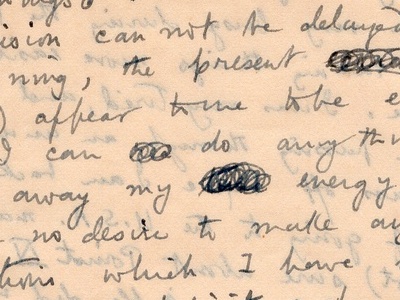 ision can not be delayed
ning, the present
) appear to me to be e
I can do any th
away my energy
no desire to make an
tions which I have